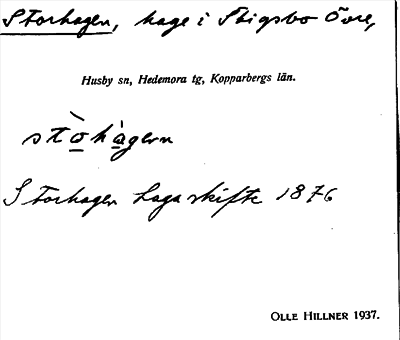 Storhagen, hage i Stigsbo Övre,
Husby sn, Hedemora tg, Kopparbergs län.
stòhàgern
Storhagen Laga skifte 1876
OLLE HILLNER 1937.